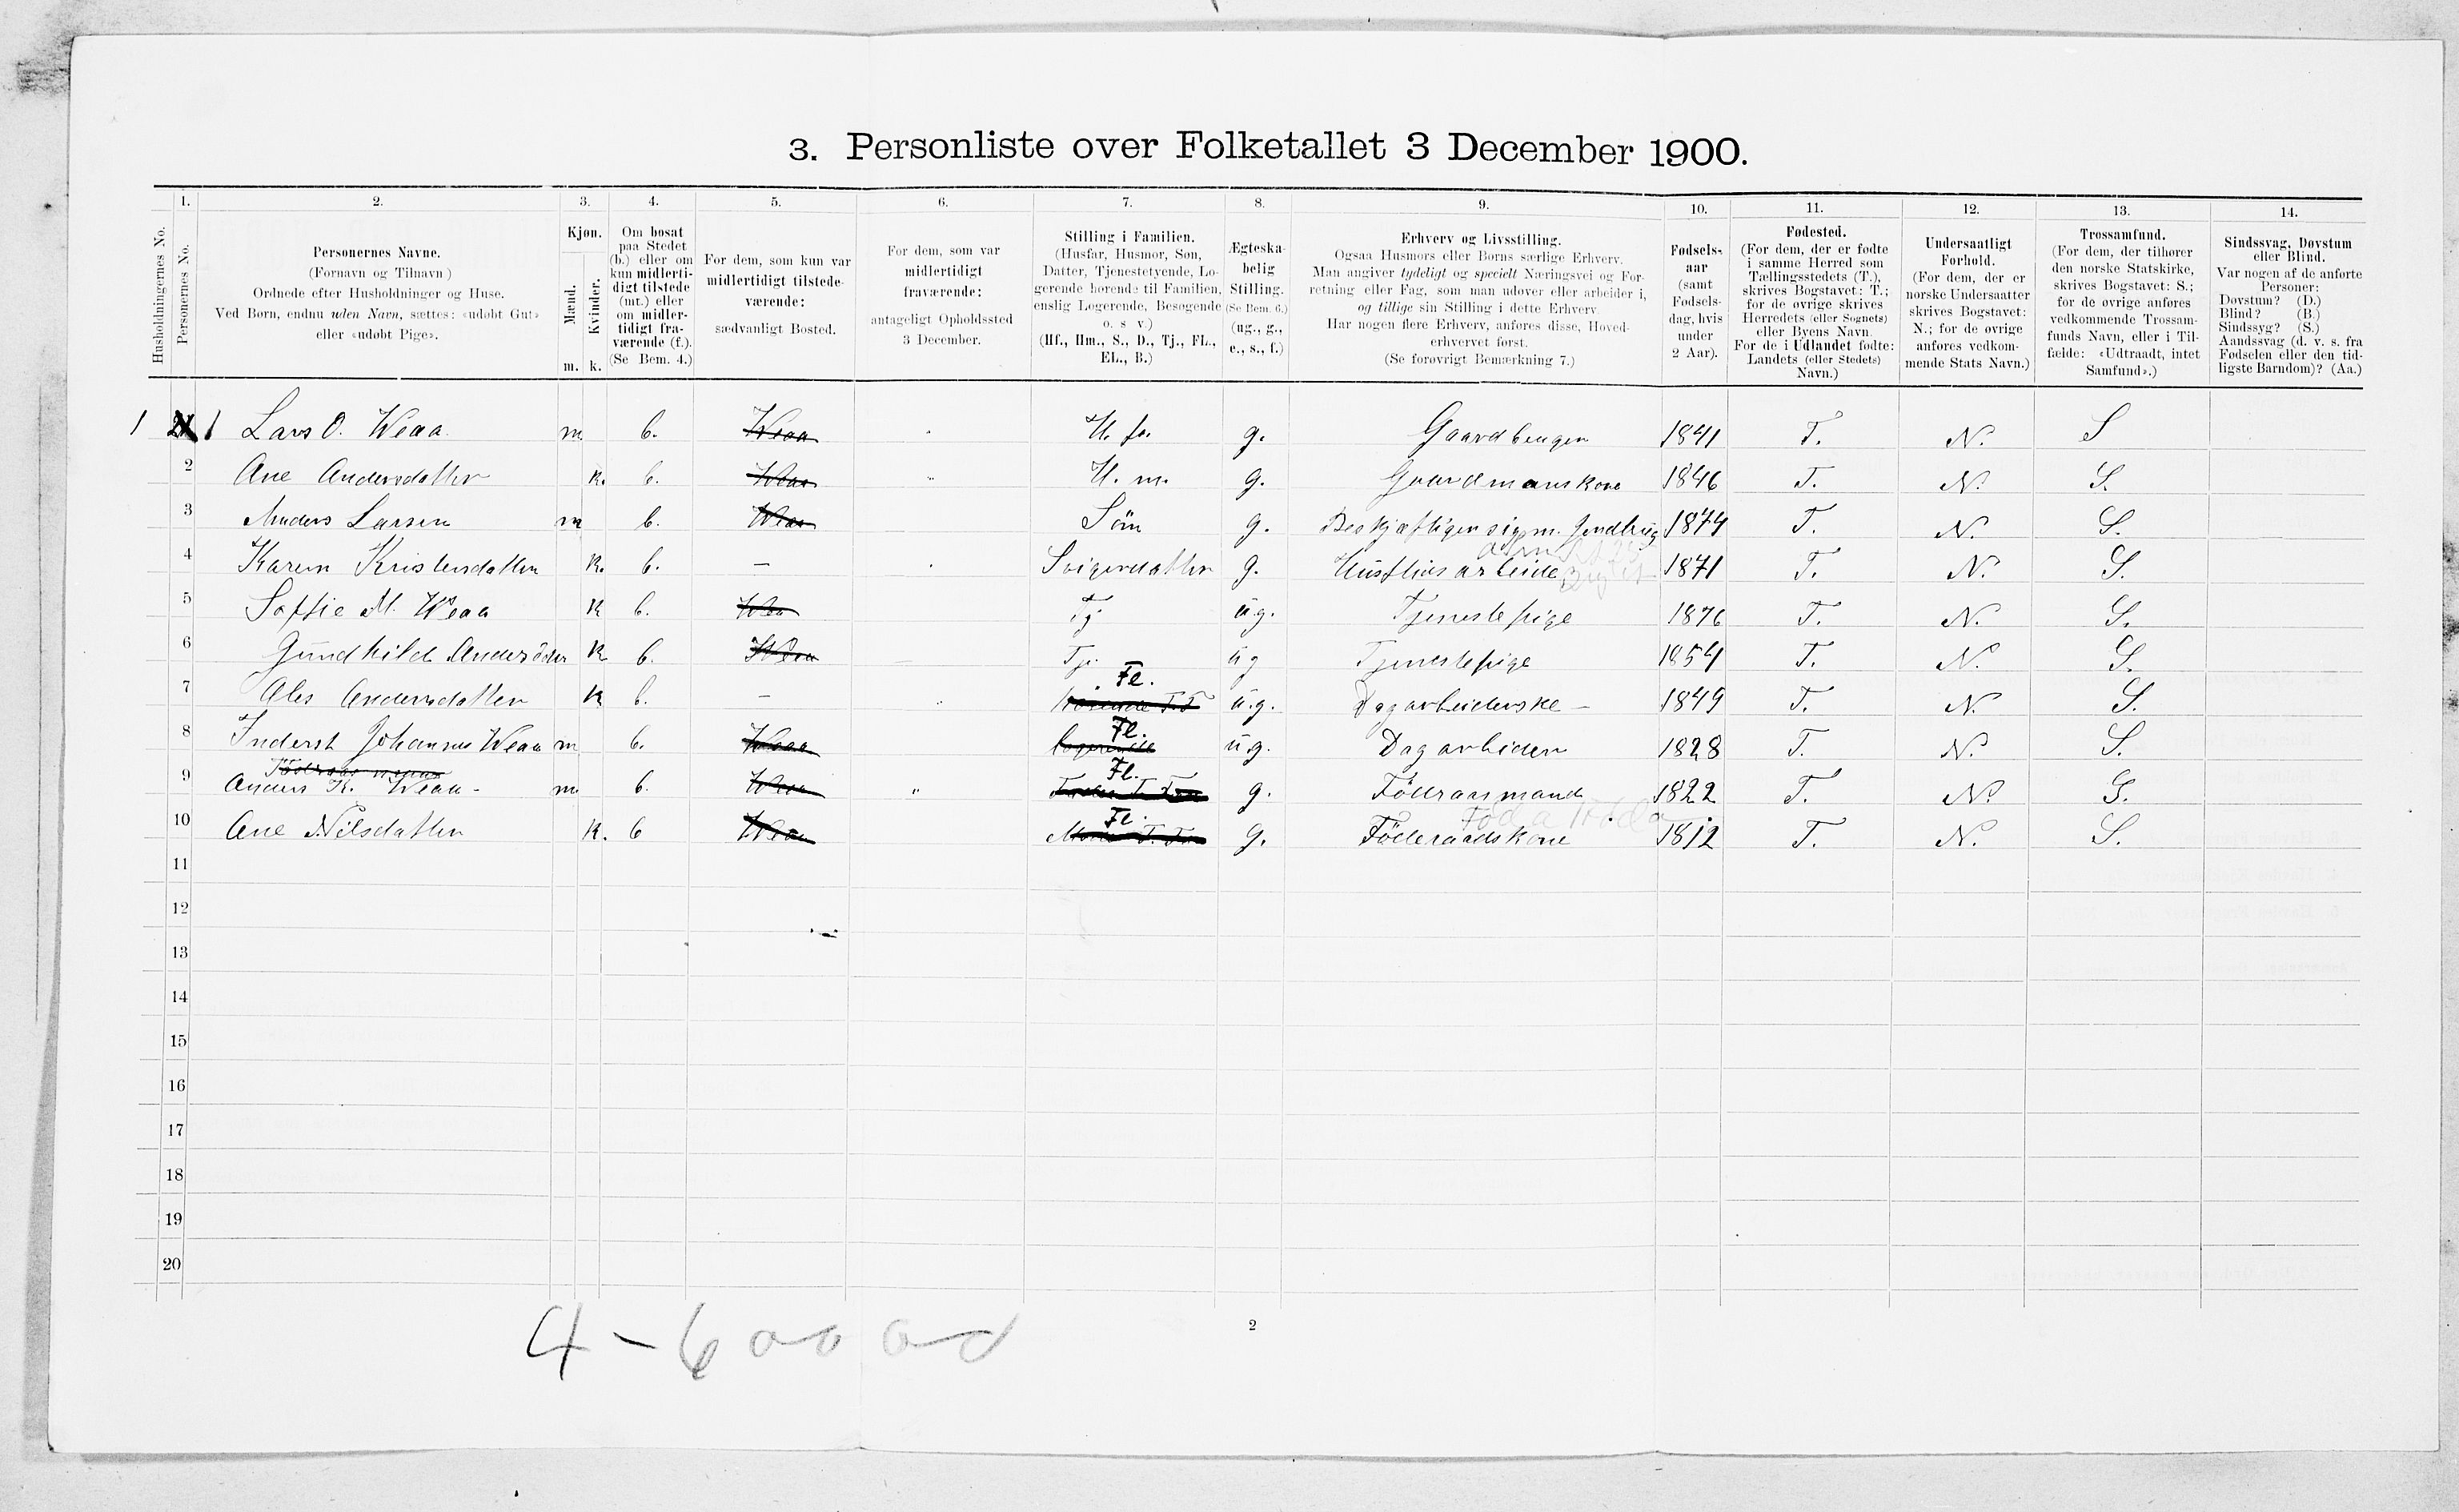 3. Personliste over Folketallet 3 December 1900.
1. 2. 3. 4. 5. 6. 7. 8. 9. 10. 11. 12. 13. 14.
Husholdningernes No.
Personernes No.
Personernes Navne.
(Fornavn og Tilnavn)
Ordnede efter Husholdninger og Huse.
Ved Børn, endnu uden Navn, sættes: «udøbt Gut»
eller «udøbt Pige».
Kjøn.
Mænd.
Kvinder.
m. k.
Om bosat
paa Stedet
(b.) eller om
kun midlerti-
digt tilstede
(mt.) eller
om midler-
tidigt fra-
værende (f.).
(Se Bem. 4.)
For dem, som kun var
midlertidigt tilstede-
værende:
sædvanligt Bosted.
For dem, som var
midlertidigt
fraværende:
antageligt Opholdssted
3 December.
Stilling i Familien.
(Husfar, Husmor, Søn,
Datter, Tjenestetyende, Lo-
gerende hørende til Familien,
enslig Logerende, Besøgende
o. s v.)
(Hf., Hm., S., D., Tj., FL.,
EL., B.)
Ægteska-
belig
Stilling.
(Se Bem. 6.)
(ug., g.,
e., s., f.)
Erhverv og Livsstilling.
Ogsaa Husmors eller Børns særlige Erhverv.
Man angiver tydeligt og specielt Næringsvei og For-
retning eller Fag, som man udøver eller arbeider i,
og tillige sin Stilling i dette Erhverv.
Har nogen flere Erhverv, anføres disse, Hoved-
erhvervet først.
(Se forøvrigt Bemærkning 7.)
Fødsels-
aar
(samt
Fødsels-
dag, hvis
under
2 Aar).
Fødested.
(For dem, der er fødte
i samme Herred som
Tællingsstedets (T.),
skrives Bogstavet: T.;
for de øvrige skrives
Herredets (eller Sognets)
eller Byens Navn.
For de i Udlandet fødte:
Landets (eller Stedets)
Navn.)
Undersaatligt
Forhold.
(For dem, der er
norske Undersaatter
skrives Bogstavet:
N.; for de øvrige
anføres vedkom-
mende Stats Navn.)
Trossamfund.
(For dem, der tilhører
den norske Statskirke,
skrives Bogstavet: S.;
for de øvrige anføres
vedkommende Trossam-
funds Navn, eller i Til-
fælde: «Udtraadt, intet
Samfund».)
Sindssvag, Døvstum
eller Blind.
Var nogen af de anførte
Personer:
Døvstum? (D.)
Blind? (B.)
Sindssyg? (S.)
Aandssvag (d. v. s. fra
Fødselen eller den tid-
ligste Barndom)? (Aa.)
1 1 Lars O. Weaa m b. Weaa H. fa. g. Gaardbruger 1841 T. N. S
2 Ane Andersdatter k. b. Weaa H. m. g. Gaardmanskone 1846 T. N. S.
3 Anders Larsen m b. Weaa Sön g. Beskjæftiger sig m. Jordbrug 1874 T. N. S.
4 Karen Kristensdatter k. b. – Svigerdatter g. Husflids arbeide 1871 T. N. S.
5 Soffie M. Weaa k b. Wea Tj ug. Tjenestepige 1876 T. N. S.
6 Gundhild Andersdtr k b. Weaa Tje. ug Tjenestepige 1854 T. N. S.
Fl.
7 Ales Andersdatter k b. – u.g. Dagarbeiderske – 1849 T. N. S.
Fl.
8 Inderst Johannes Weaa m b. Weaa logerende u.g. Dagarbeider 1828 T. N. S.
Fl.
9 Anders K. Weaa - m b. Weaa g. Föderaasmand 1822 T. N. S.
Fl.
10 Ane Nilsdatter k. b Weaa g. Föderaadskone 1812 T. N. S.
11
12
13
14
15
16
17
18
19
20
2
4 – 6